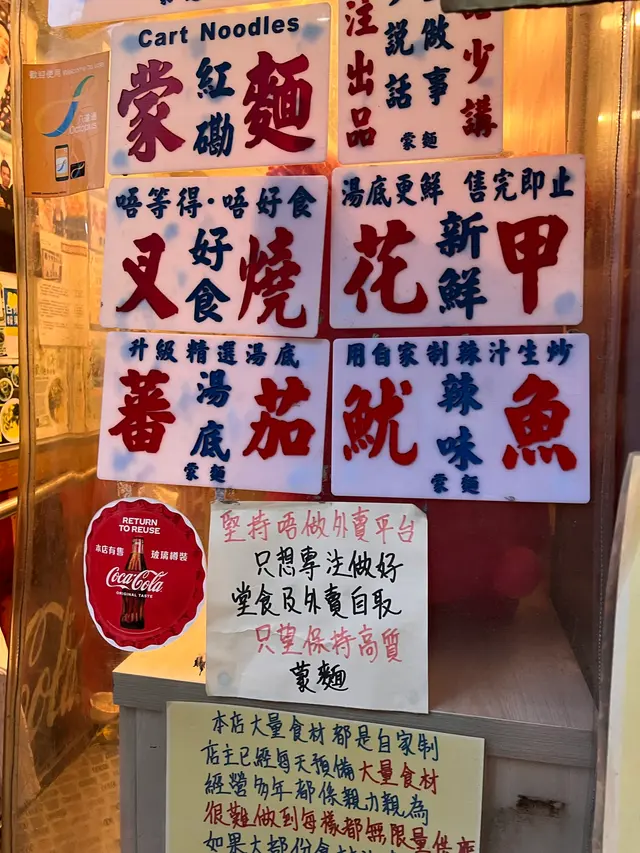 Cart Noodles
蒙 紅磡 麵
注出品
少說話
多做事
蒙麵
少講
歡迎使用
八達通
Octopus
唔等得·唔好食
叉 好食 燒
湯底更鮮 售完即止
花 新鮮 甲
升級精選湯底
蕃 湯底 茄
蒙麵
用自家制辣汁生炒
魷 辣味 魚
蒙麵
RETURN
TO REUSE
本店有售 玻璃樽裝
Coca-Cola
ORIGINAL TASTE
堅持唔做外賣平台
只想專注做好
堂食及外賣自取
只望保持高質
蒙麵
本店大量食材都是自家制
店主已經每天預備大量食材
經營多年都係親力親為
很難做到每樣都無限量供應
如果大部份食材